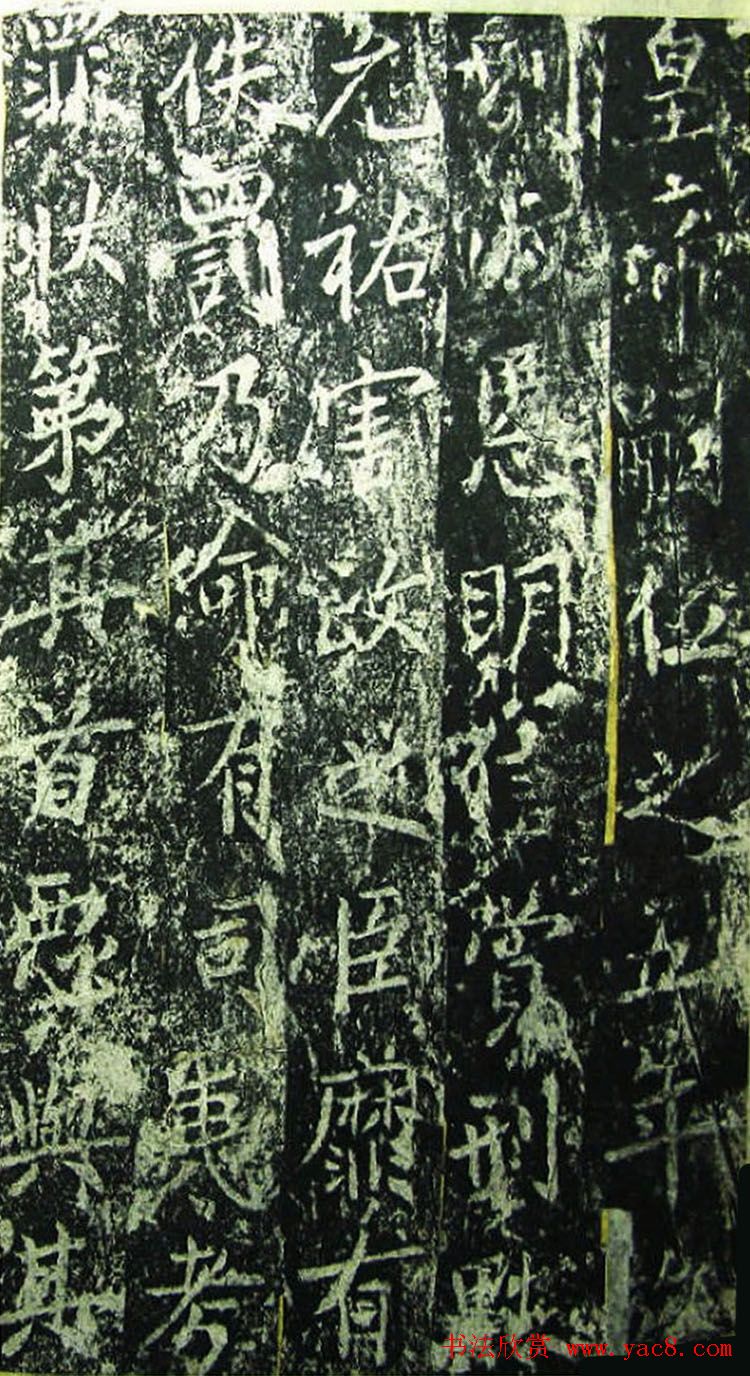 皇帝嗣位之五年
別淑慝明賞刑黜
元祐害政之臣靡有
佚罰乃命有司夷考
罪狀第其首惡與其
书法欣赏 www.yac8.com